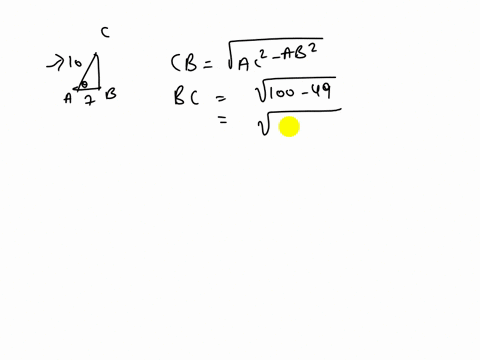 C
→10
θ
A 7 B
CB = √AC² - AB²
BC = √100 - 49
= √